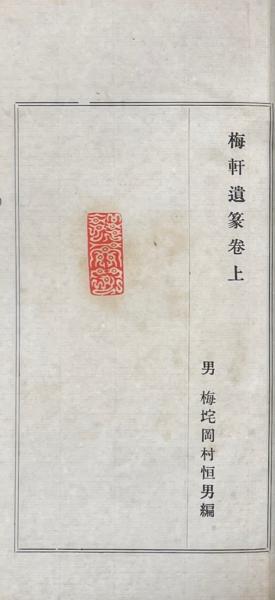 梅軒遺篆卷上
男 梅垞岡村恒男編